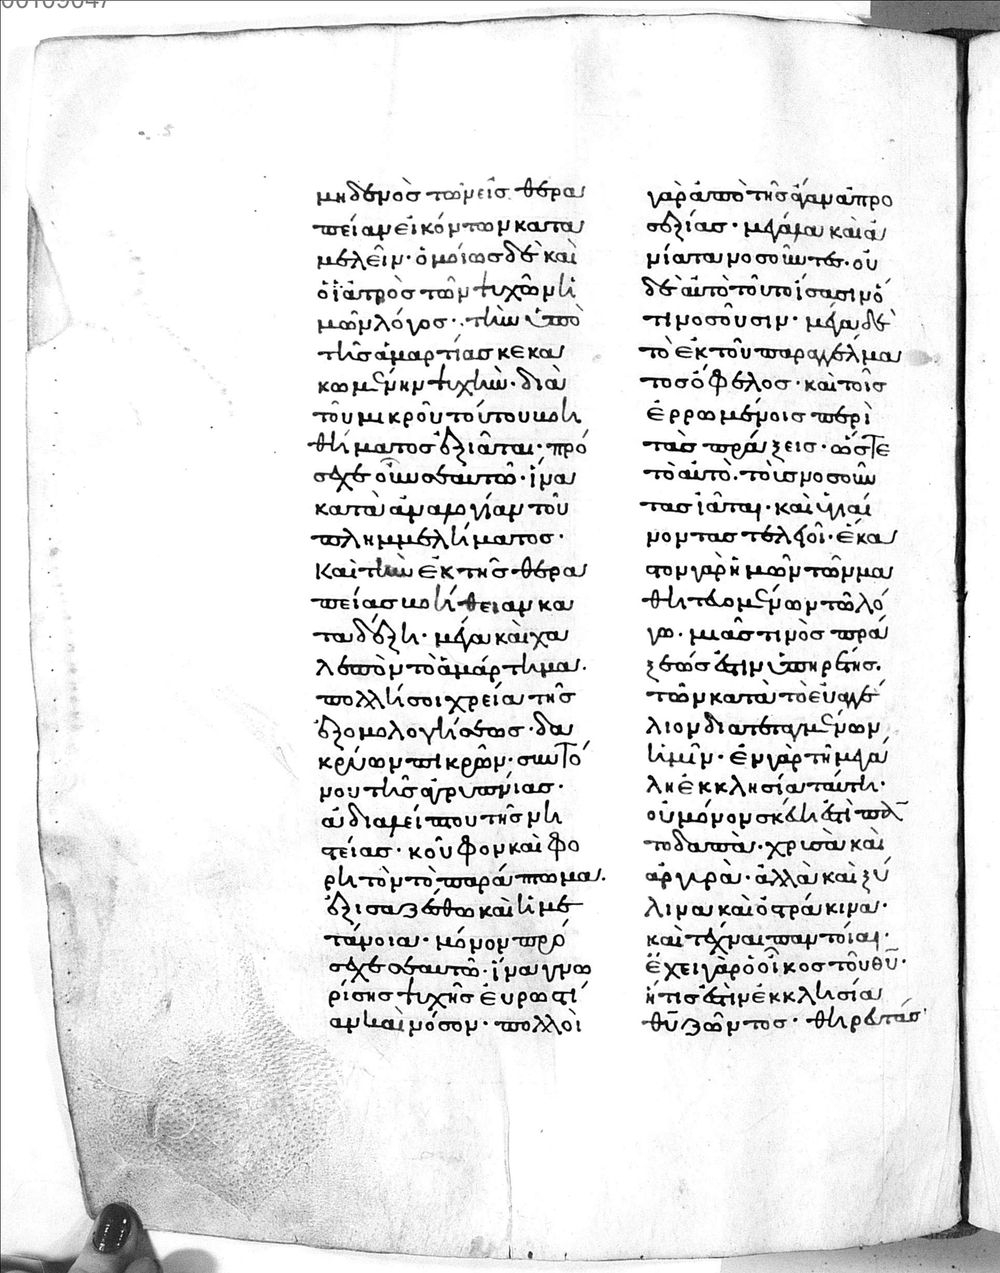 μηδενὸς τῶν εἰς θερα
πείαν εἰκόντων κατα
μελεῖν· ὁμοίως δὲ καὶ
ὁ ἰατρὸς τῶν ψυχῶν ἡ
μῶν λόγος· τὴν ὑπὸ
τῆς ἁμαρτίας κεκα
κωμένην ψυχὴν· διὰ
τοῦ μικροῦ τούτου βοη
θήματος ἐξιᾶται· πρό
σεχε οὖν σεαυτῶ· ἵνα
κατὰ ἀναλογίαν τοῦ
πλημμελήματος·
καὶ τὴν ἐκ τῆς θερα
πείας βοήθειαν κα
ταδέξη· μέγα καὶ χα
λεπὸν τὸ ἁμάρτημα·
πολλῆς σοι χρεία τῆς
ἐξομολογήσεως· δα
κρύων πικρῶν· συντό
νου τῆς ἀγρυπνίας·
ἀδιαλείπτου τῆς νη
στείας· κοῦφον καὶ φο
ρητὸν τὸ παράπτωμα·
ἐξισαζέσθω καὶ ἡ με
τάνοια· μόνον πρό
σεχε σεαυτῶ· ἵνα γνω
ρίσης ψυχῆς εὐρωστί
αν καὶ νόσον· πολλοὶ
γὰρ ὑπὸ τῆς ἄγαν ἀπρο
σεξίας· μεγάλα καὶ ἀ
νίατα νοσοῦντες· οὐ
δὲ αὐτὸ τοῦτο ἴσασιν ὅ
τι νοσοῦσιν· μέγα δὲ
τὸ ἐκ τοῦ παραγγέλμα
τος ὄφελος· καὶ τοῖς
ἐρρωμένοις περὶ
τὰς πράξεις· ὥστε
τὸ αὐτὸ· τοὺς νοσοῦν
τας ἰᾶται· καὶ ὑγιαί
νοντας τελειοῖ· ἕκα
στος γὰρ ἡμῶν τῶν μα
θητευομένων τῶ λό
γω· μιᾶς τινὸς πρά
ξεώς ἐστιν ὑπηρέτης·
τῶν κατὰ τὸ εὐαγγέ
λιον διατεταγμένων
ἡμῖν· ἐν γὰρ τῆ μεγά
λη ἐκκλησία ταύτη·
οὐ μόνον σκεύη ἐστὶ παν
τοδαπὰ· χρυσὰ καὶ
ἀργυρὰ· ἀλλὰ καὶ ξύ
λινα καὶ ὀστράκινα·
καὶ τέχναι παντοῖαι·
ἔχει γὰρ ὁ οἶκος τοῦ θυ·
ἥτις ἐστὶν ἐκκλησία
θυ ζῶντος· θηρευτάς